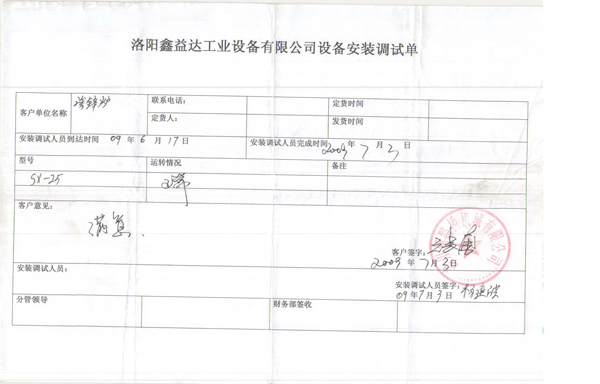 洛阳鑫益达工业设备有限公司设备安装调试单
客户单位名称
联系电话:
定货时间
定货人:
发货时间
安装调试人员到达时间 09 年 6 月 17 日
安装调试人员完成时间 2009 年 7 月 3 日
型号
运转情况
备注
SX-25
正常
客户意见:
满意.
客户签字:
2009 年 7 月 3 日
安装调试人员:
安装调试人员签字:
09 年 7 月 3 日
分管领导
财务部签收